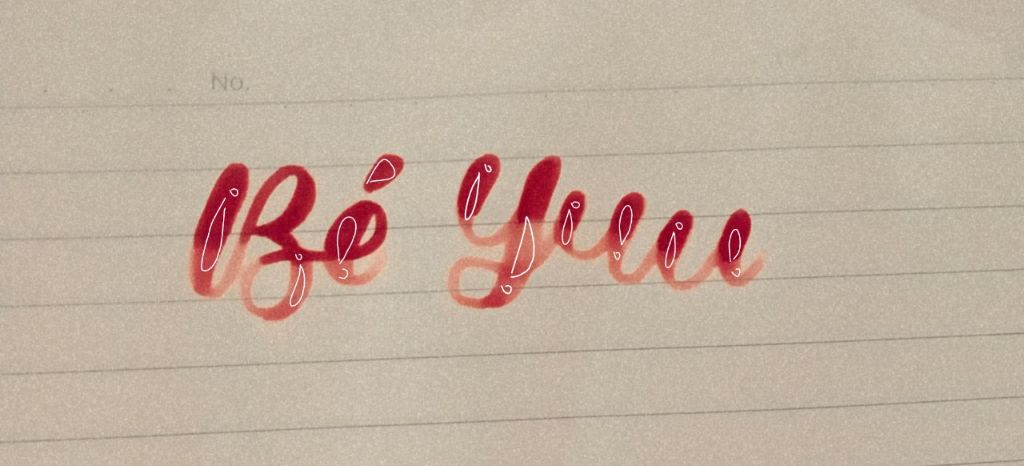 No.
Bé Yuu